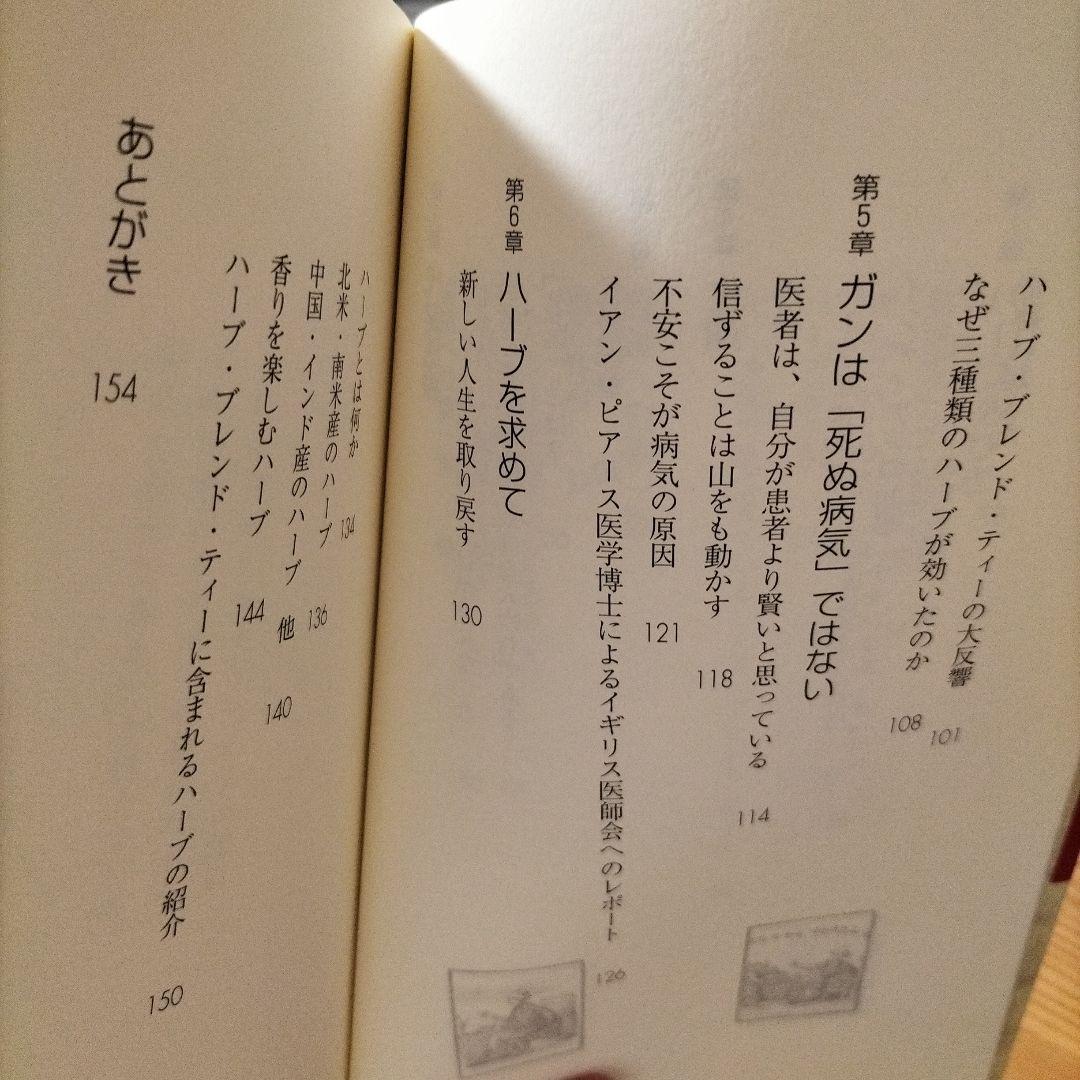 ハーブ・ブレンド・ティーの大反響
101
なぜ三種類のハーブが効いたのか
108
第5章
ガンは「死ぬ病気」ではない
医者は、自分が患者より賢いと思っている
114
信ずることは山をも動かす
118
不安こそが病気の原因
121
イアン・ピアース医学博士によるイギリス医師会へのレポート
126
第6章
ハーブを求めて
新しい人生を取り戻す
130
ハーブとは何か
134
北米・南米産のハーブ
136
中国・インド産のハーブ 他
140
香りを楽しむハーブ
144
ハーブ・ブレンド・ティーに含まれるハーブの紹介
150
あとがき
154